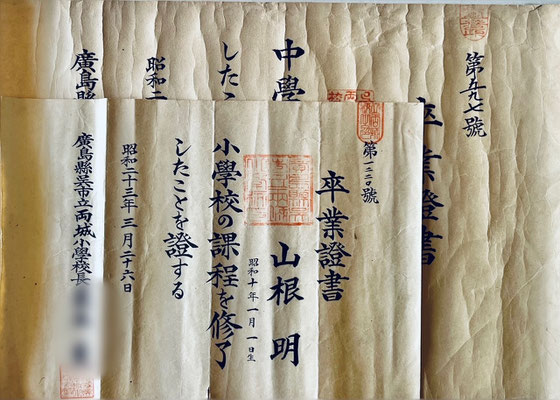 第五九七號
卒業證書
中學
したこ
昭和二
廣島縣
第一二二〇號
卒業證書
山根 明
昭和十年一月一日生
小學校の課程を修了
したことを證する
昭和二十三年三月二十六日
廣島縣呉市立両城小學校長